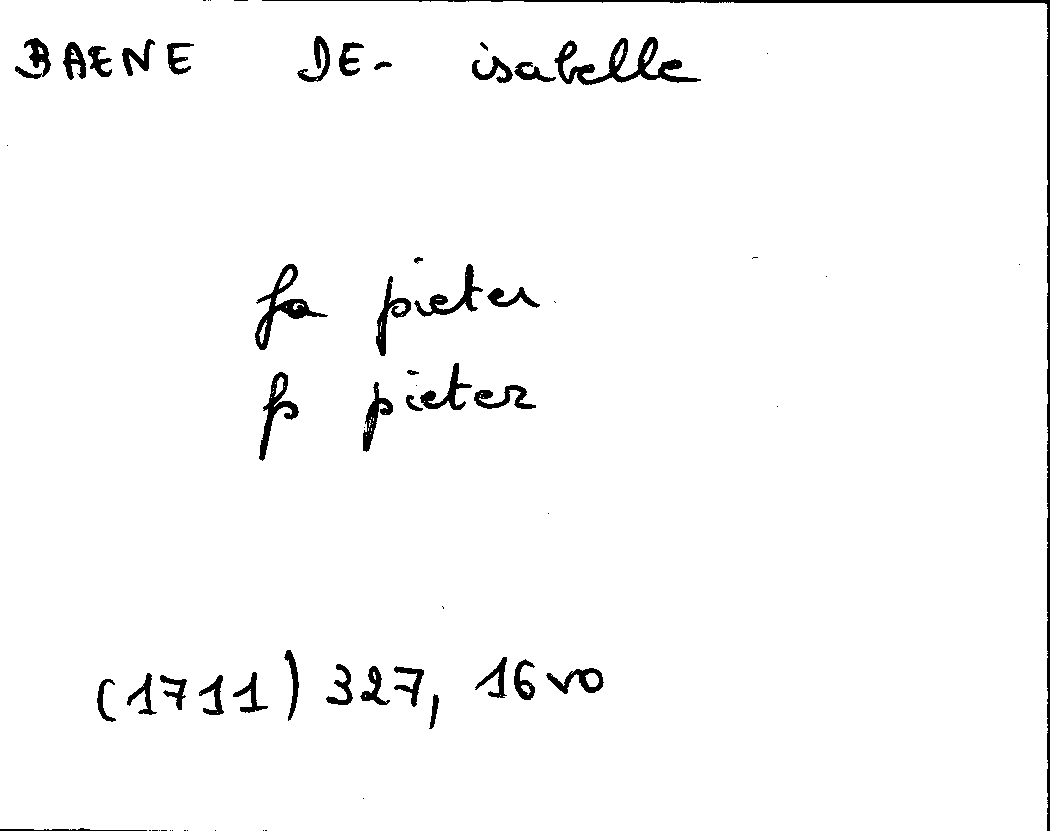 BAENE DE- isabelle
fa pieter
fs pieter
(1711) 327, 16vo